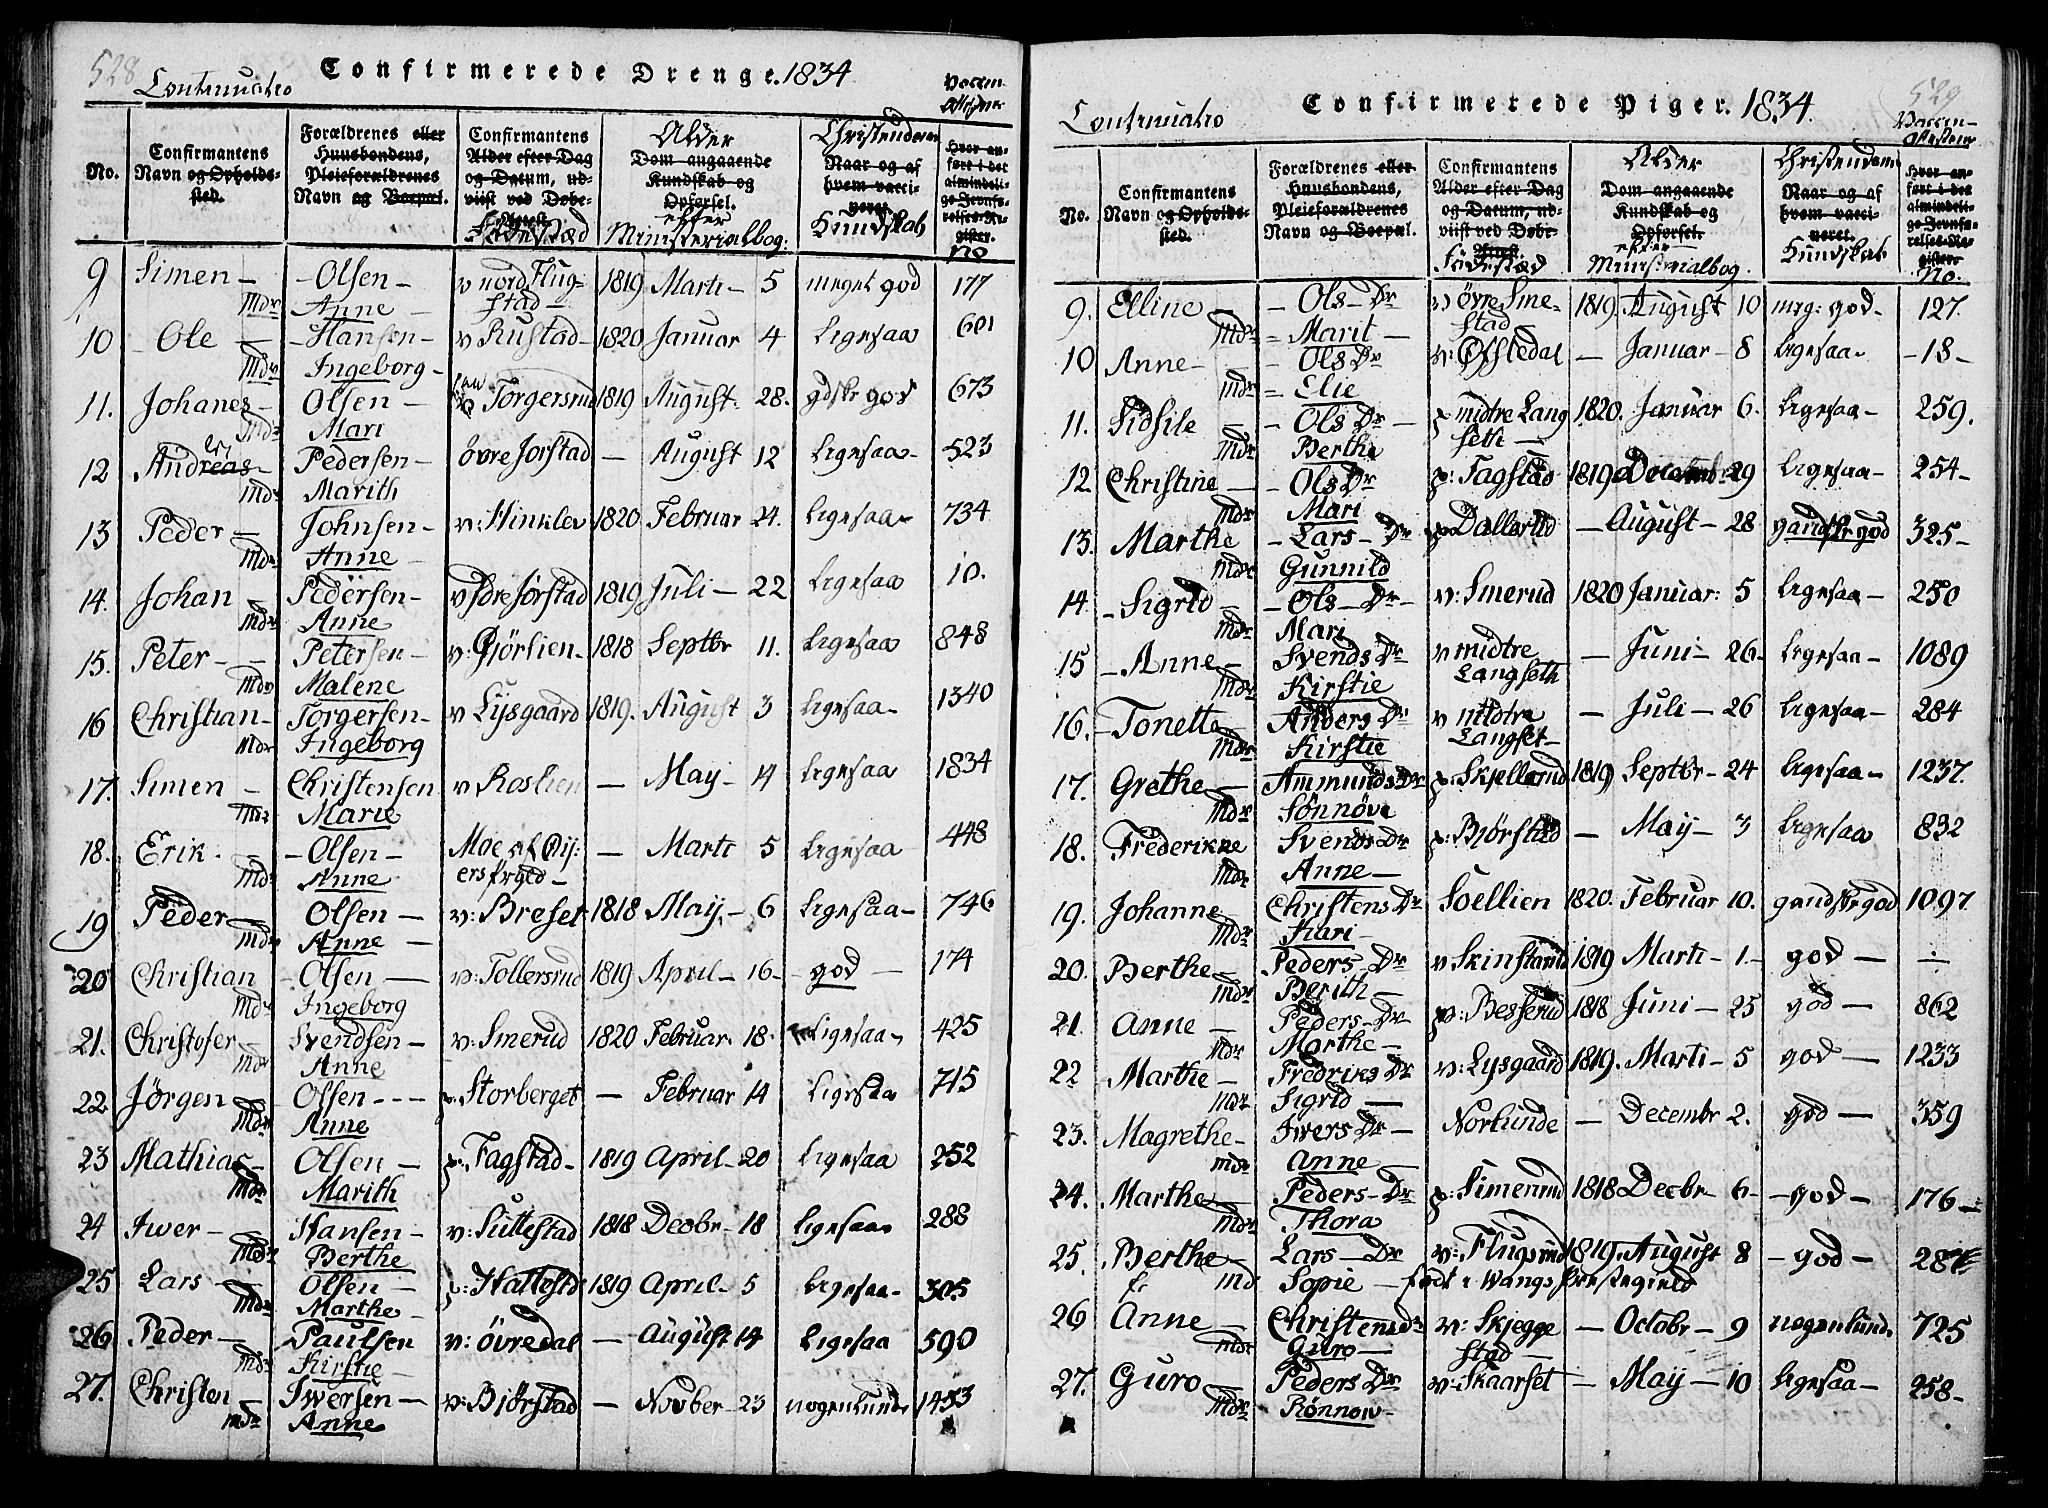 528
Continuatio
Confirmerede Drenge. 1834
Vaccin
Attester
No.
Confirmantens Navn og Opholdssted.
Forældrenes eller Huusbondens, Pleieforældrenes Navn og Boepæl.
Confirmantens Alder efter Dag og Datum, udviist ved Døbe-Attest.
Fødestæd
Alder
Dom angaaende Kundskab og Opførsel.
efter
Ministerialbog:
Christendoms
Naar og af hvem vaccineret.
Kundskab
Hvor anført i det almindelige Jevnførelses-Register.
No
9 Simen — Olsen — v nord Flug- 1819 Marti — 5 meget god 177
Mdr Anne — stad —
10 Ole — Hansen — v Rustad — 1820 Januar 4 ligesaa 601
Mdr Ingeborg —
11. Johanes — Olsen — Torgersrud 1819 August 28. gdske god 673
Mdr Mari
12 Andreas — Pedersen — övre Jorstad — August 12 ligesaa — 523
Mdr Marith
13 Peder — Johnsen — v: Hinklev 1820 Februar 24. ligesaa — 734
Mdr Anne —
14. Johan Pedersen — v Jdre Jørstad 1819 Juli — 22 ligesaa 10.
Mdr Anne —
15. Peter — Petersen — v: Gjörlien — 1818 Septbr 11. ligesaa 848
Mdr Malene
16 Christian — Torgersen — v Lysgaard 1819. August 3 ligesaa — 1340
Mdr Ingeborg
17. Simen — Christensen v Roslien — May — 14 ligesaa 1834
Mdr Marie
18. Erik. — Olsen — Moe af Öy: — Marti 5 ligesaa 448
Mdr Anne — ers prgld —
19 Peder — Olsen — v: Breset 1818 May, — 6 ligesaa — 746
Mdr Anne —
20 Christian Olsen — v: Tollersrud 1819 April — 16 — god — 174
Mdr Ingeborg
21. Christofer — Svendsen — v: Smerud 1820 Februar 18. ligesaa — 425
Mdr Anne
22 Jørgen Olsen --- v. Storberget — Februar 14 ligesaa 715
Mdr Anne
23 Mathias — Olsen — v: Fagstad — 1819 April — 20 ligesaa 252
Mdr Marith
24 Iwer — Hansen — v: Suttestad 1818 Decbr — 18 ligesaa 288
Mdr Berthe
25 Lars — Olsen — v: Hattestd 1819 April — 5 ligesaa — 305
Mdr Marthe —
26 Peder — Paulsen v: övredal — August 14 ligesaa 590
Mdr Kirstie —
27. Christen — Iwersen — v: Bjørstad — Novber — 23 nogenlunde 1453
Mdr Anne
529
Continuatio
Confirmerede Piger. 1834.
Vaccin—
Attester
No.
Confirmantens Navn og Opholdssted.
Forældrenes eller Huusbondens, Pleieforældrenes Navn og Boepæl.
Confirmantens Alder efter Dag og Datum, udviist ved Døbe-Attest.
Födestæd
Alder
Dom angaaende Kundskab og Opførsel.
efter
Ministerialbog.
Christendoms
Naar og af hvem vaccineret.
Kundskab
Hvor anført i det almindelige Jevnførelses-Register.
No.
9. Elline — Ols — Dr v övre Sme- 1819. August 10 meg: god — 127.
Mdr — Marit — stad —
10 Anne — — Ols Dr v: Öfstedal — Januar — 8 ligesaa — 18 —
Mdr = Elie
11. Sidsile — — Ols Dr — v midtre Lang 1820. Januar 6. ligesaa — 259.
Mdr Berthe seth —
12 Christine — — Ols Dr v: Fagstad 1819 December 29 ligesaa — 254 —
Mdr Mari
13. Marthe — Lars — Dr v Dallerud — August — 28 gandske god 325 —
Mdr Gunnild
14 — Sigrid — — Ols — Dr — v: Smerud 1820 Januar: 5 ligesaa — 250
Mdr Mari
15 — Anne — Svends Dr v midtre — Juni — 26 — ligesaa — 1089
Mdr Kirstie Langseth
16. — Tonette Anders Dr v mtdtre — Juli — 26 ligesaa — 284
Mdr Kirstie Langset —
17. Grethe — Ammunds Dr v: Skjellerud 1819 Septbr — 24 ligesaa — 1237.
Mdr Sønnøve
18. Frederikne Svends Dr v: Bjørstad — May — 3 ligesaa 832
Mdr Anne —
19. Johanne Christens Dr Soellien 1820. Februar 10. gandske god 1097.
Mdr Kari —
20. Berthe — Peders — Dr v Skinstarud 1819 Marti — 1 — god — ÷
Mdr Berith —
21. Anne — Peders — Dr v: Besserud 1818 Juni — 25 god — 862
Mdr Marthe —
22 Marthe — Fredriks Dr v: Lysgaard 1819. Marti — 5 god — 1233
Mdr Sigrid —
23. Magrethe — Iwers Dr — Norlunde — Decembr 2. god — 359
Mdr Anne
24. Marthe — Peders — Dr v: Simenrud 1818 Decbr — 6 — — god — 176 —
Mdr Thora
25. Berthe — Lars — Dr v: Flugsrud 1819. August 8 — god — 287
Md Sopie — födt i Wangs Præstegield
26 Anne — Christensdr v: Skjegge — Octobr — 9 nogenlunde 725
Mdr Guro — stad —
27. Guro — Peders Dr v: Skaarset — May — 10 ligesaa — 258 —
Mdr Rönnow